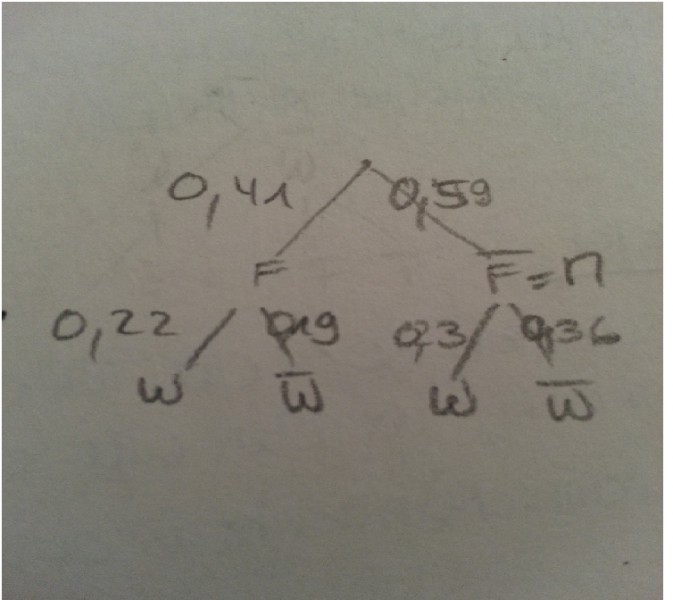 0,41 0,59
F F̅ = M
0,22 0,19 0,3 0,36
W W̅ W W̅